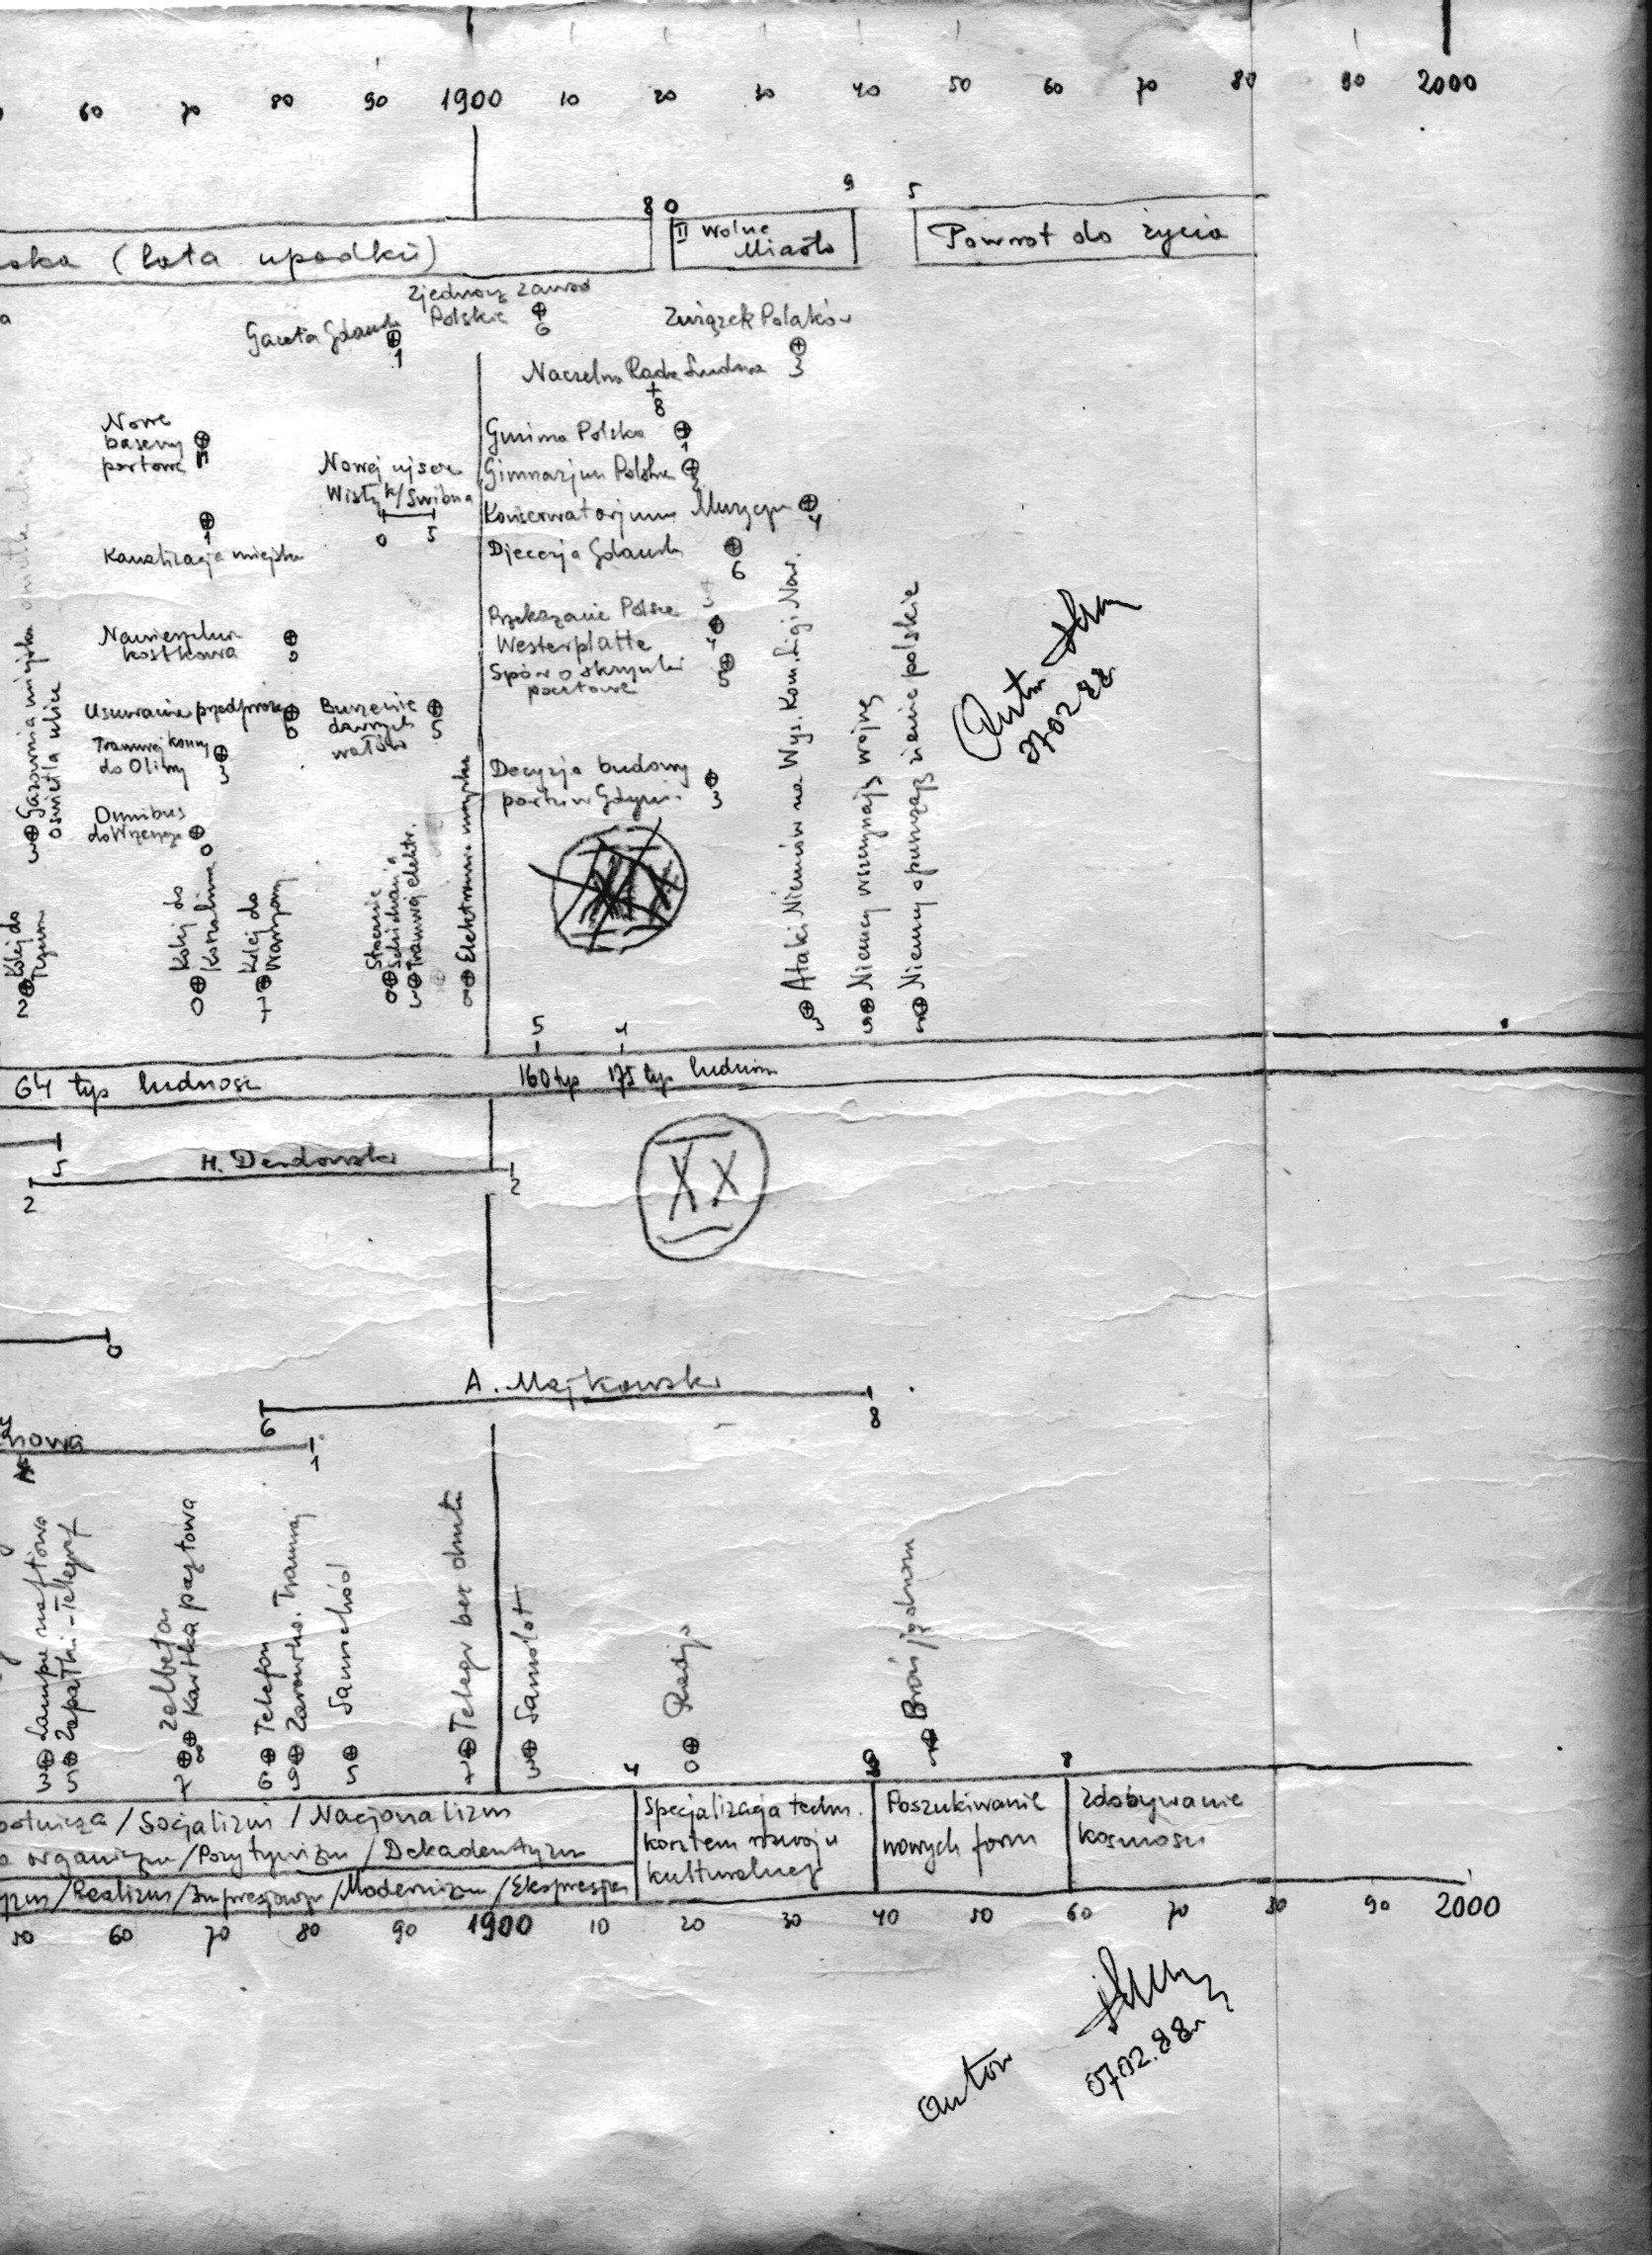 60 70 80 90 1900 10 20 30 40 50 60 70 80 90 2000
8 0 9 5
ska (lata upadku)
II Wolne
Miasto
Powrot do życia
Zjednocz Zawod
Polskie
6
Gazeta Gdansk
1
Związek Polaków
3
Naczelna Rada Ludowa
8
Nowe
baseny
portowe
Gmina Polska
1
Gimnazjum Polskie
2
Nowej ujscie
Wisły k/Swibna
0 5
Konserwatorjum Muzyczn
4
1
Kanalizacja miejska
Djecezja Gdansk
6
Przekazanie Polsce
Westerplatte
4
Nawierzchnia
kostkowa
Spór o skrzynki
pocztowe
5
Usuwanie przedproży
Burzenie
dawnych
wałów
5
Tramwaj konny
do Oliwy
3
Decyzja budowy
portu w Gdyni
3
Omnibus
do Wrzeszcza
0
3 Gazownia miejska
oświetla ulice
2 Kolej do
Tczewa
0 Kolej do
Koszalina
7 Kolej do
Warszawy
0 Stocznie
Schichau'a
Tramwaj elektr.
Elektrownia miejska
3 Ataki Niemców na Wys. Kom. Ligi Nar.
9 Niemcy wszczynają wojnę
5 Niemcy opuszczają ziemie polskie
Autor
07 02 88
5 4
64 tys ludnosc
160 tys 175 tys ludnosc
5
H. Derdowski
2 2
XX
0
A. Majkowski
6 8
1
3 Lampa naftowa
5 Zapałki - Telegraf
7 Żelbeton
Kartka pocztowa
6 Telefon
9 Żarówka. Tramwaj
5 Samochód
7 Telegr bez drutu
3 Samolot
0 Radjo
Broń jądrowa
4 9 8
/ Socjalizm / Nacjonalizm
organizm / Pozytywizm / Dekadentyzm
/ Realizm / Impresjonizm / Modernizm / Ekspresjon
Specjalizacja techn.
kosztem rozwoju
kulturalnego
Poszukiwanie
nowych form
Zdobywanie
kosmosu
50 60 70 80 90 1900 10 20 30 40 50 60 70 80 90 2000
autor
07.02.88r